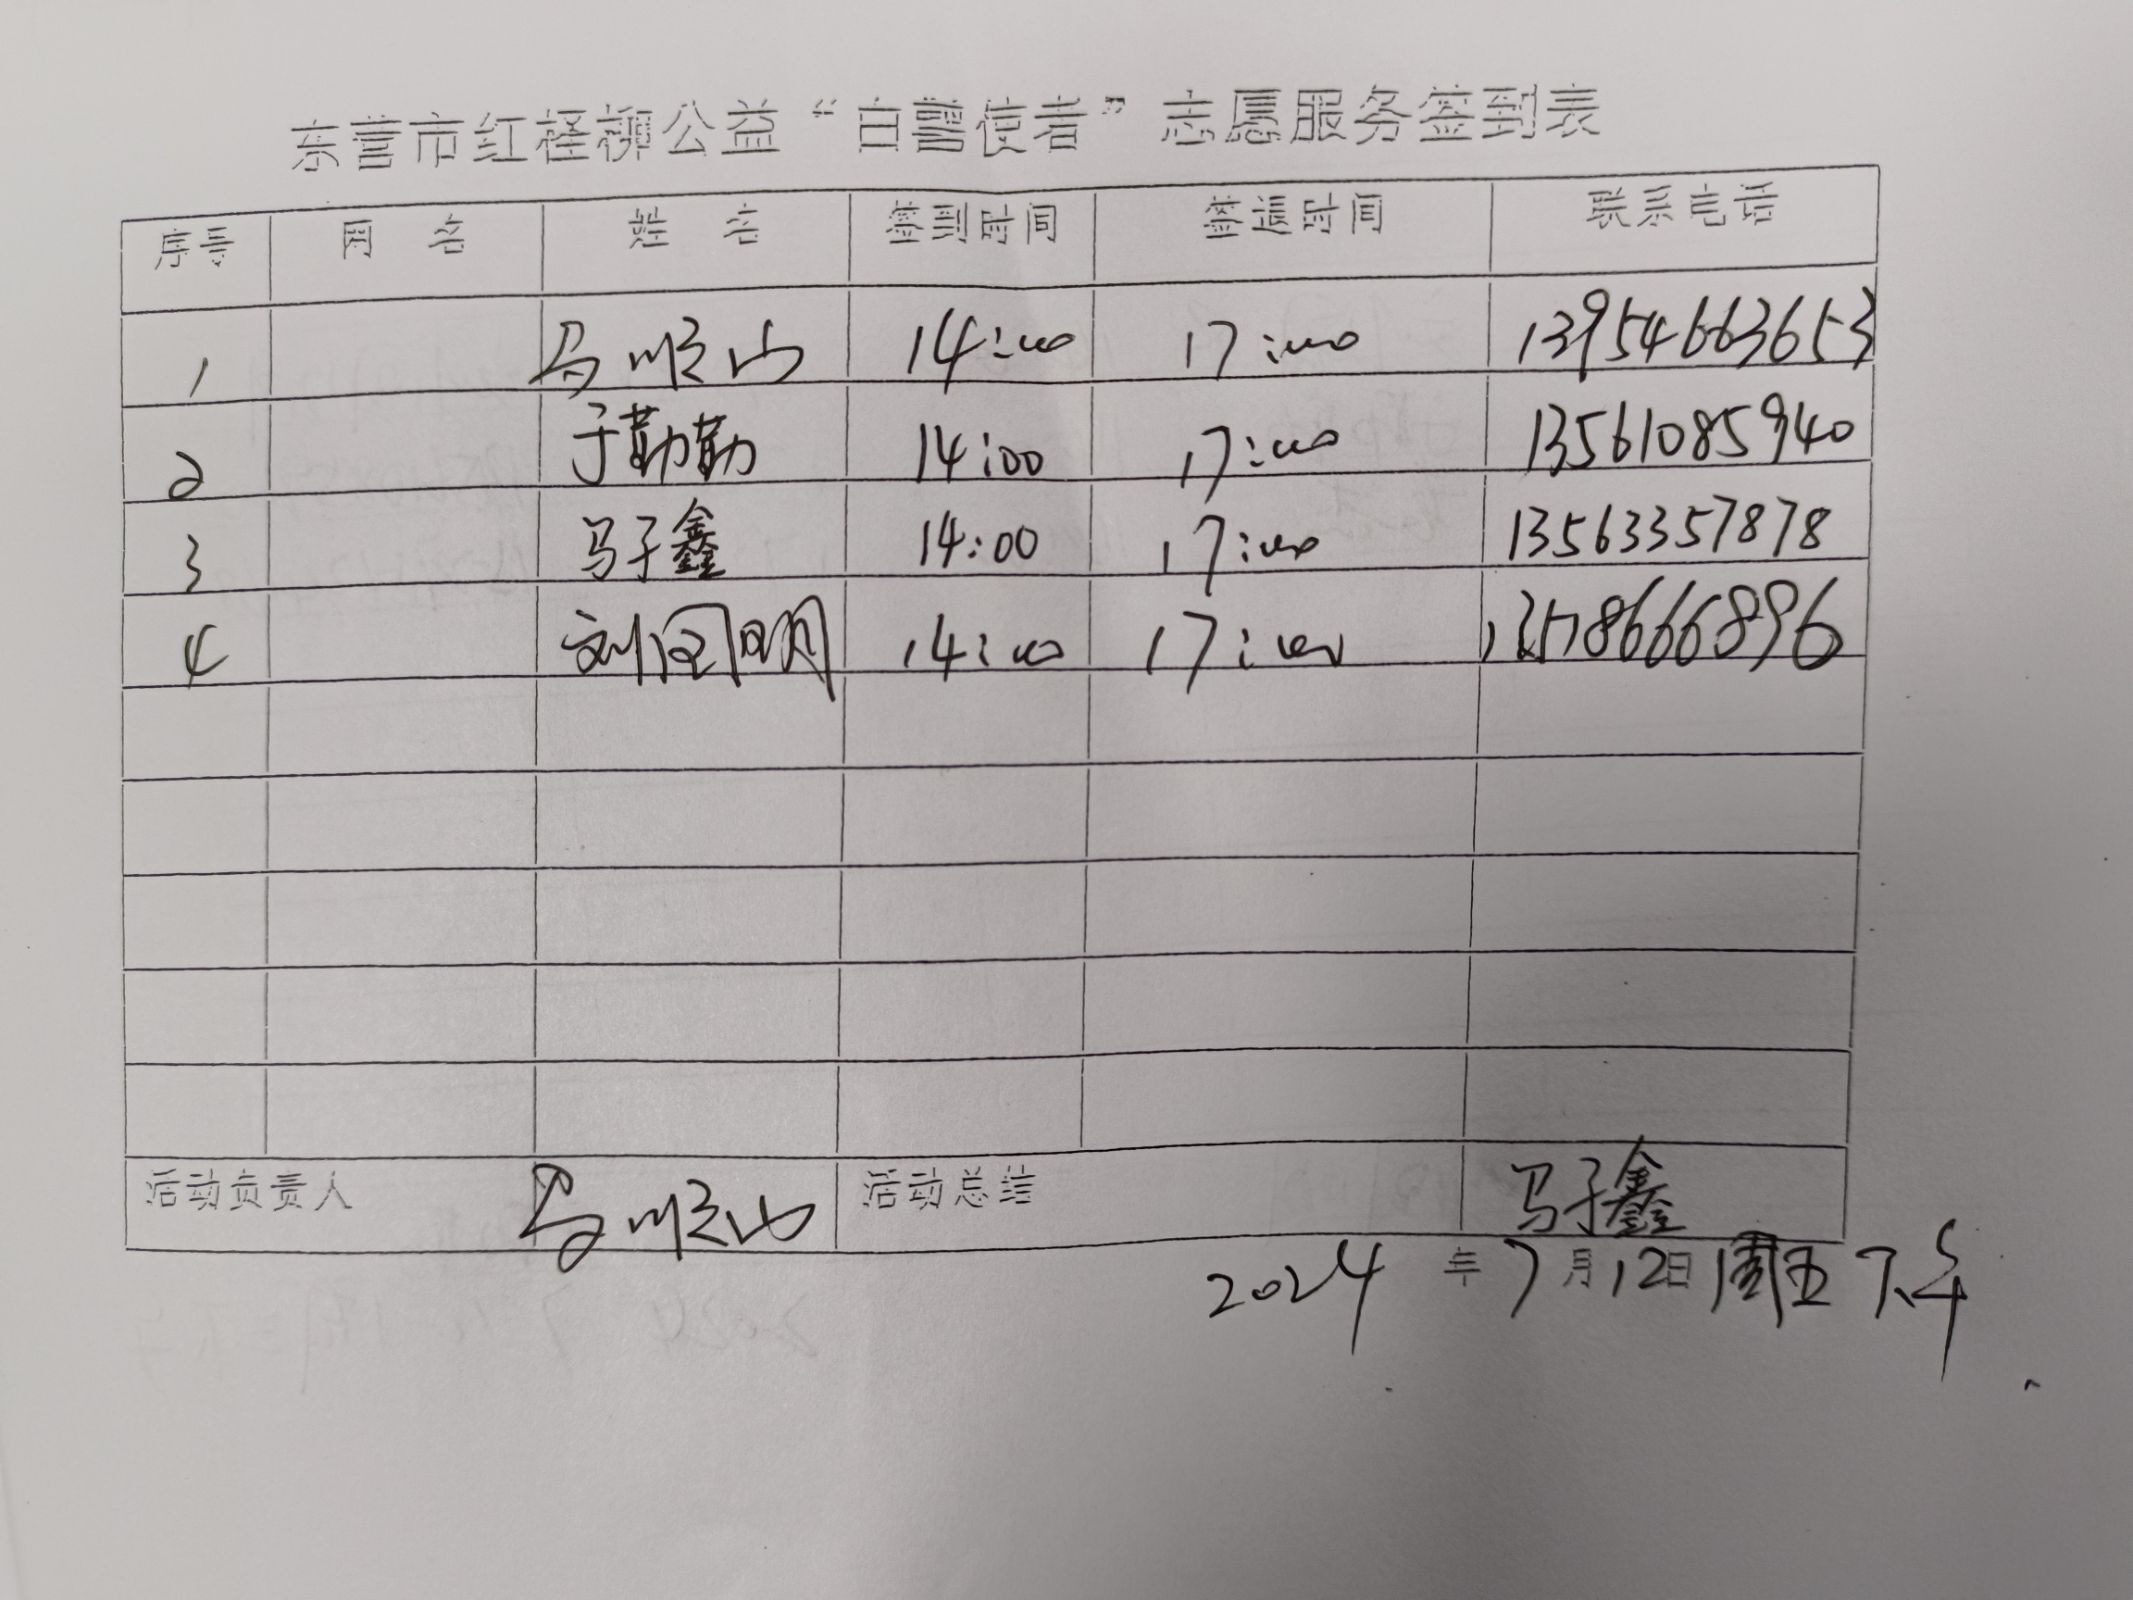 东营市红柽柳公益“白鹭使者”志愿服务签到表
序号 网名 姓名 签到时间 签退时间 联系电话
1 马顺山 14:00 17:00 13954663653
2 于勤勤 14:00 17:00 13561085940
3 马子鑫 14:00 17:00 13563357878
4 14:00 17:00
活动负责人 马顺山 活动总结 马子鑫
2024年7月12日 周五下午